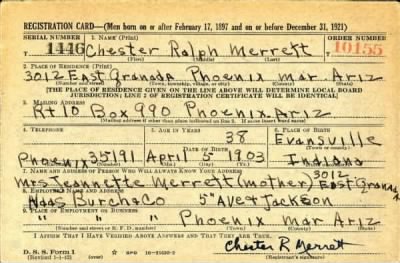 REGISTRATION CARD—(Men born on or after February 17, 1897 and on or before December 31, 1921)
SERIAL NUMBER 1. NAME (Print) ORDER NUMBER
1446 Chester Ralph Merrett 10155
(First) (Middle) (Last)
2. PLACE OF RESIDENCE (Print)
3012 East Granada Phoenix Mar Ariz
(Number and street) (Town, township, village, or city) (County) (State)
[THE PLACE OF RESIDENCE GIVEN ON THE LINE ABOVE WILL DETERMINE LOCAL BOARD
JURISDICTION; LINE 2 OF REGISTRATION CERTIFICATE WILL BE IDENTICAL]
3. MAILING ADDRESS
Rt 10 Box 990 Phoenix, Ariz
[Mailing address if other than place indicated on line 2. If same insert word same]
4. TELEPHONE 5. AGE IN YEARS 6. PLACE OF BIRTH
38 Evansville
DATE OF BIRTH
Phoenix 35191 April 5 1903 Indiana
7. NAME AND ADDRESS OF PERSON WHO WILL ALWAYS KNOW YOUR ADDRESS 3012
Mrs Jeannette Merrett (mother) East Granada
8. EMPLOYER'S NAME AND ADDRESS
Burch & Co 5" Ave & Jackson
9. PLACE OF EMPLOYMENT OR BUSINESS
" " " Phoenix Mar Ariz
(Number and street or R. F. D. number) (Town) (County) (State)
I AFFIRM THAT I HAVE VERIFIED ABOVE ANSWERS AND THAT THEY ARE TRUE.
D. S. S. Form 1 Chester R Merrett
(Revised 1-1-42) (Registrant's signature)